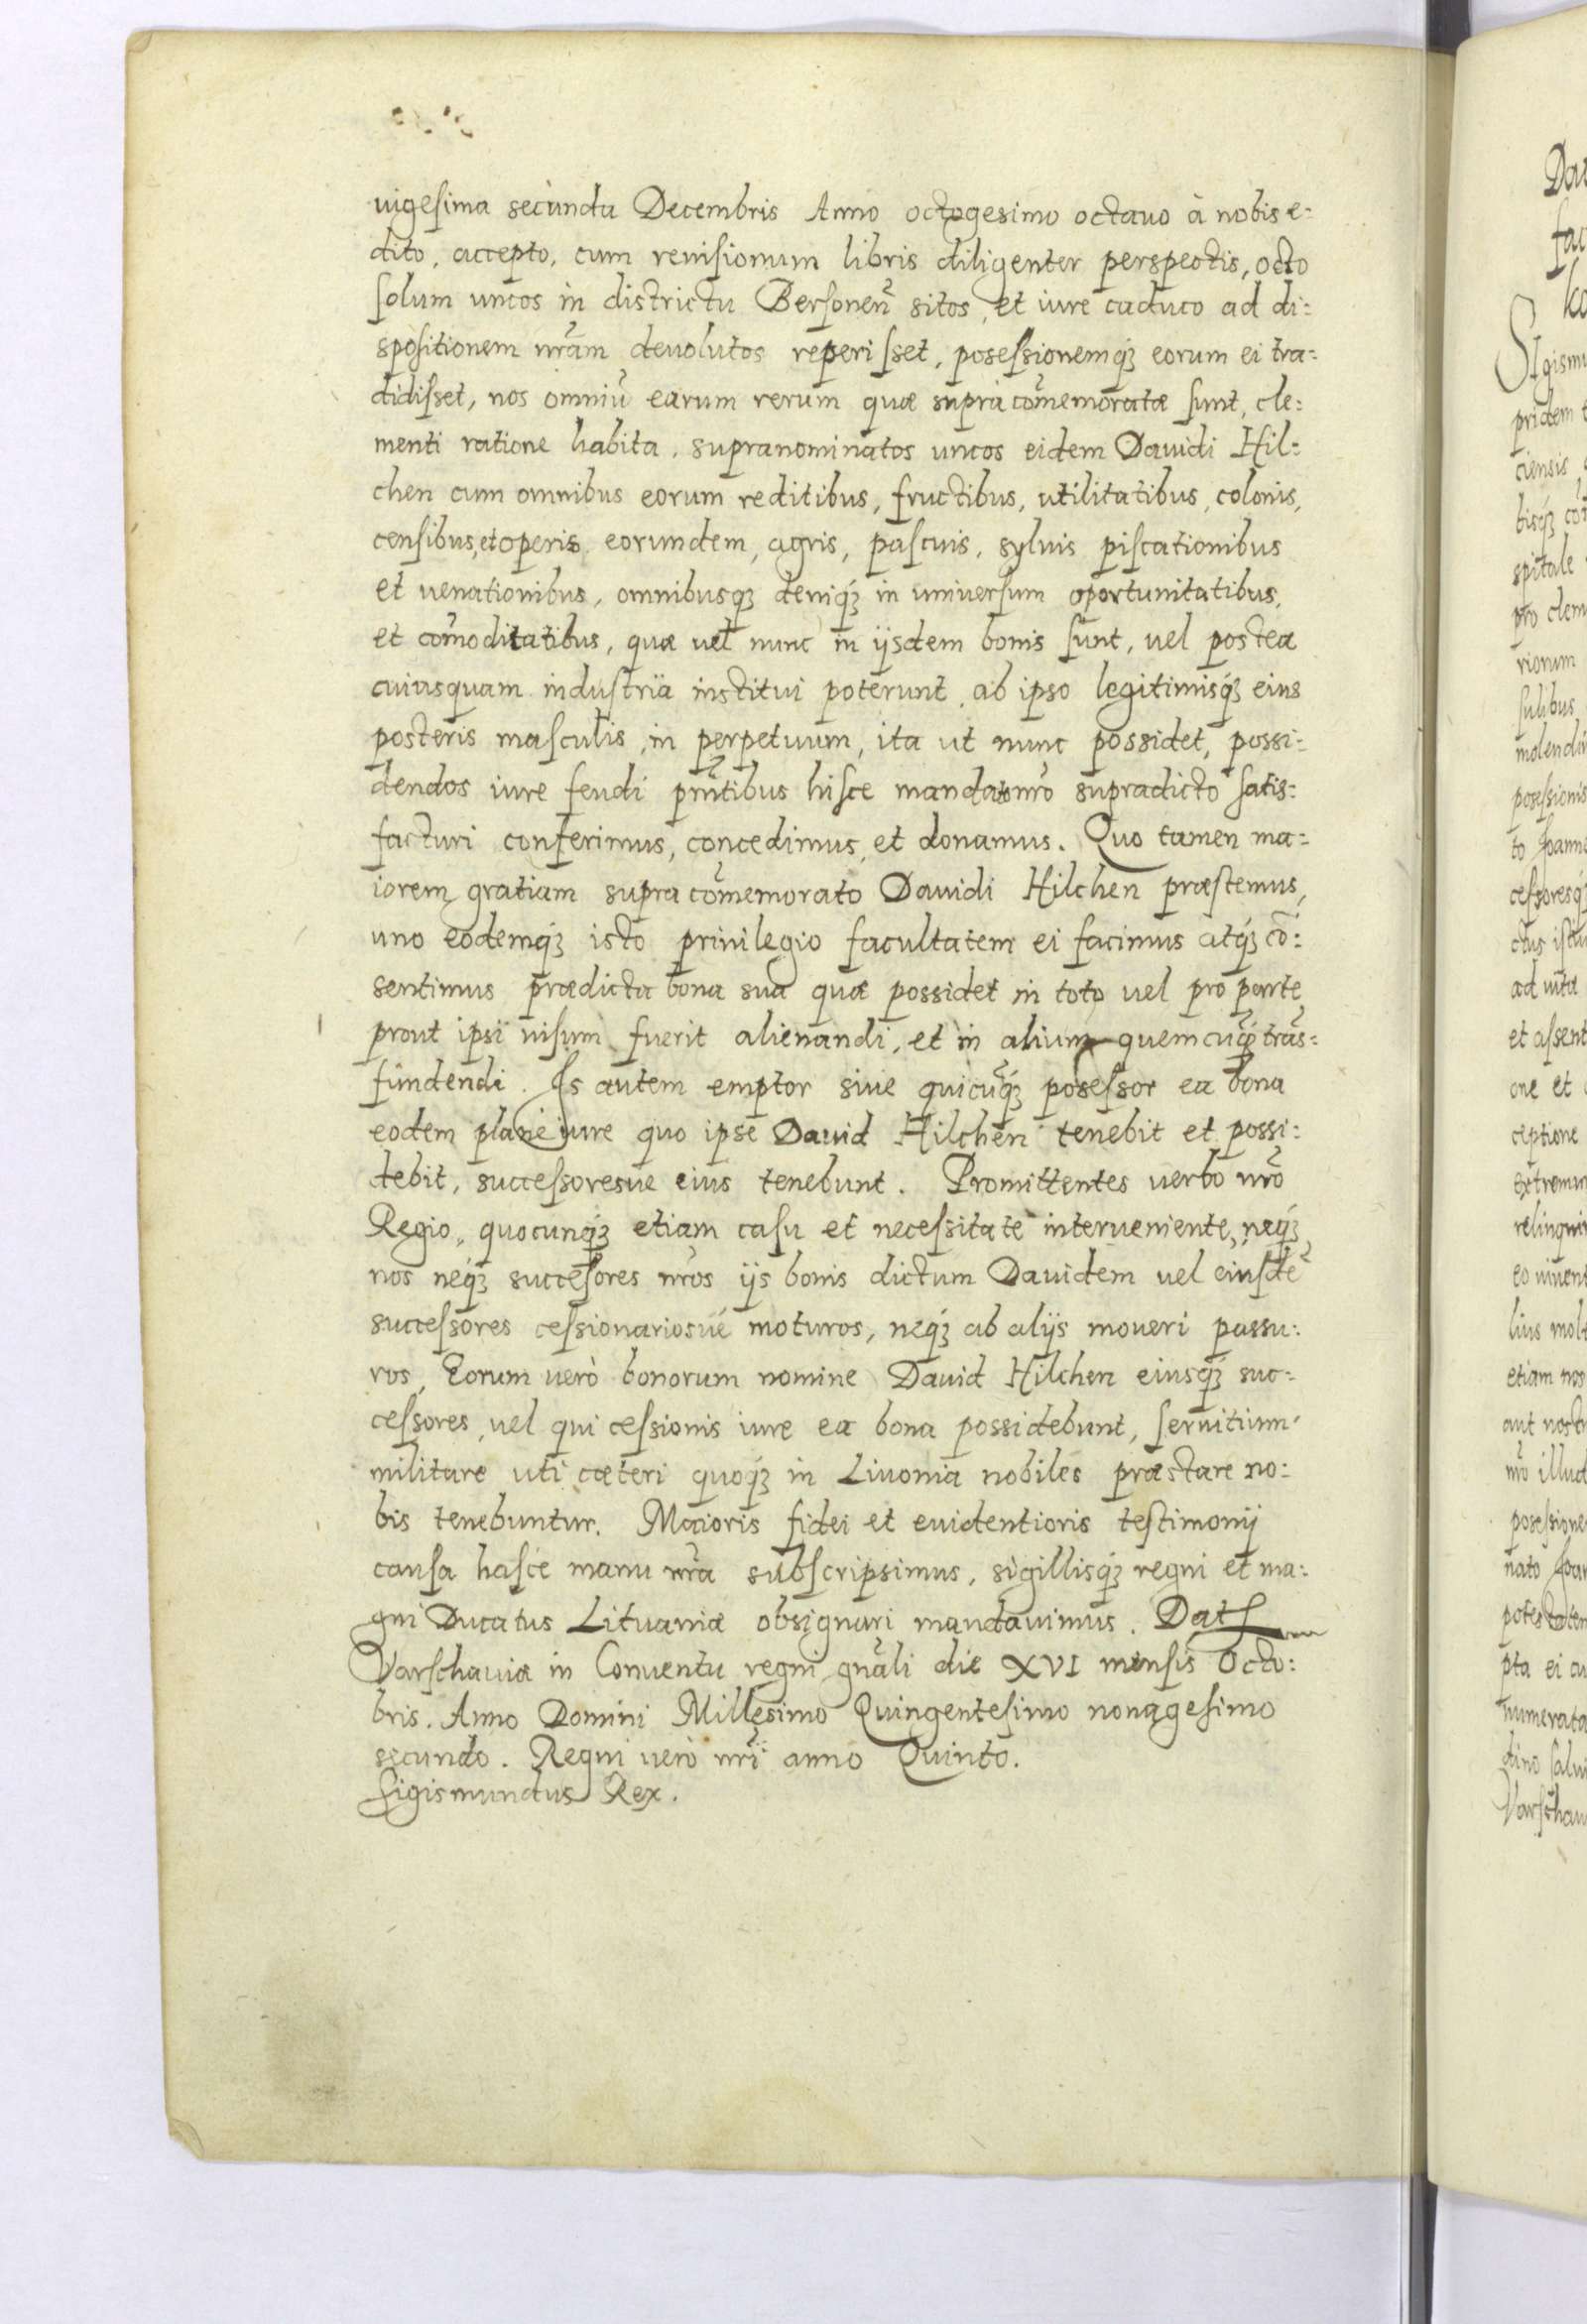 uigesima secunda Decembris Anno octogesimo octauo à nobis e:
dito, accepto, cum reuisionum libris diligenter perspectis, octo
solum uncos in districtu Bersoneñ sitos, et iure caduco ad di:
spositionem nr̃am deuolutos reperisset, posessionemq́ꝫ eorum ei tra:
didisset, nos omniũ earum rerum quæ suprà com̃emoratæ sunt, cle:
menti ratione habita, supranominatos uncos eidem Dauidi Hil:
chen cum omnibus eorum reditibus, fructibus, utilitatibus, colonis,
censibus, et operis eorundem, agris, pascuis, syluis piscationibus
et uenationibus, omnibusqꝫ deniq́ꝫ in uniuersum oportunitatibus,
et com̃oditatibus, quæ uel nunc in ijsdem bonis sunt, uel postea
cuiusquam industria institui poterunt, ab ipso legitimisq́ꝫ eius
posteris masculis, in perpetuum, ita ut nunc possidet, possi:
dendos iure feudi pñtibus hisce mandato nr̃o supradicto satis:
facturi conferimus, concedimus, et donamus. Quo tamen ma:
iorem gratiam supra com̃emorato Dauidi Hilchen præstemus,
uno eodemq́ꝫ isto priuilegio facultatem ei facimus atq́ꝫ cõ:
sentimus prædicta bona sua quæ possidet in toto uel pro parte
prout ipsi uisum fuerit alienandi, et in alium quemcuq̃ꝫ trãs:
fundendi. Is autem emptor siue quicũq́ꝫ posessor ea bona
eodem planè iure quo ipse Dauid Hilchen tenebit et possi:
debit, successoresue eius tenebunt. Promittentes uerbo nr̃o
Regio, quocunq́ꝫ etiam casu et necessitate interueniente, neq́ꝫ
nos neq́ꝫ successores nr̃os ijs bonis dictum Dauidem uel eiusdẽ
successores cessionariosué moturos, neq́ꝫ ab alijs moueri passu:
ros, Eorum uerò bonorum nomine Dauid Hilchen eiusq́ꝫ suc:
cessores, uel qui cessionis iure ea bona possidebunt, seruitium
militare uti cæteri quoq́ꝫ in Liuonia nobiles præstare no:
bis tenebuntur. Maioris fidei et euidentioris testimonij
causa hasce manu nr̃a subscripsimus, sigillisq́ꝫ regni et ma:
gni Ducatus Lituaniæ obsignari mandauimus. Dat
Varschauiæ in Conuentu regni gnãli die XVI mensis Octo:
bris. Anno Domini Millesimo Quingentesimo nonagesimo
secundo. Regni uerò nr̃i anno Quinto.
Sigismundus Rex.